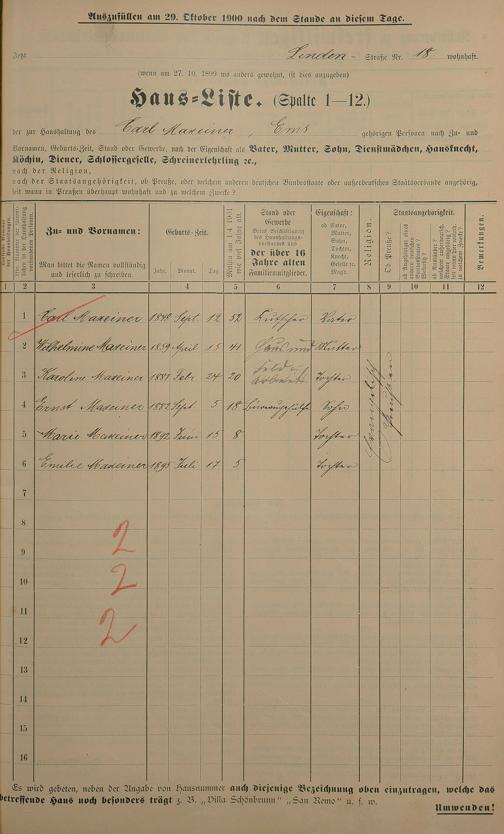 Auszufüllen am 29. Oktober 1900 nach dem Stande an diesem Tage.
Jetzt Linden - Straße Nr. 18 wohnhaft.
(wenn am 27. 10. 1899 wo anders gewohnt, ist dies anzugeben)
Haus-Liste. (Spalte 1—12.)
der zur Haushaltung des Carl Maxeiner, Ems gehörigen Personen nach Zu- und
Vornamen, Geburts-Zeit, Stand oder Gewerbe, nach der Eigenschaft als Vater, Mutter, Sohn, Dienstmädchen, Hausknecht,
Köchin, Diener, Schlossergeselle, Schreinerlehrling ꝛc.,
nach der Religion,
nach der Staatsangehörigkeit, ob Preuße, oder welchem anderen deutschen Bundesstaate oder außerdeutschen Staatsverbande angehörig,
seit wann in Preußen überhaupt wohnhaft und zu welchem Zwecke?
Zu- und Vornamen:
Man bittet die Namen vollständig
und leserlich zu schreiben.
Geburts-Zeit.
Jahr. Monat. Tag
Mithin am 1/4 1901
wie viel Jahre alt.
Stand oder
Gewerbe
der über 16
Jahre alten
Familienmitglieder.
Eigenschaft:
ob Vater,
Mutter,
Sohn,
Tochter,
Knecht,
Geselle ꝛc.
Magd.
Religion.
Staatsangehörigkeit.
Ob Preuße?
Bemerkungen.
1 2 3 4 5 6 7 8 9 10 11 12
1 Carl Maxeiner 1848 Sept. 12 52 Kutscher Vater
2 Wilhelmine Maxeiner 1859 April 15 41 Haus und Mutter
3 Karoline Maxeiner 1881 Febr 24 20 Feld - arbeit Tochter
4 Ernst Maxeiner 1882 Sept 5 18 Bürauagehülfe Sohn
5 Marie Maxeiner 1892 Juni 15 8 Tochter
6 Emilie Maxeiner 1895 Juli 17 5 Tochter
evangelisch
Preußen
7
8
9 2
10 2
11
12 2
13
14
15
16
Es wird gebeten, neben der Angabe von Hausnummer auch diejenige Bezeichnung oben einzutragen, welche das
betreffende Haus noch besonders trägt z. B. „Villa Schönbrunn" „San Remo" u. s. w.
Umwenden!